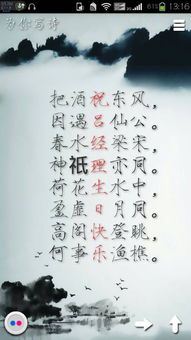 13:16
为你写诗
把酒祝东风，
因遇吕仙公。
春水经染宋，
神祇理亦同。
荷花生水中，
盈虚日月同。
高阁快登眺，
何事乐渔樵。